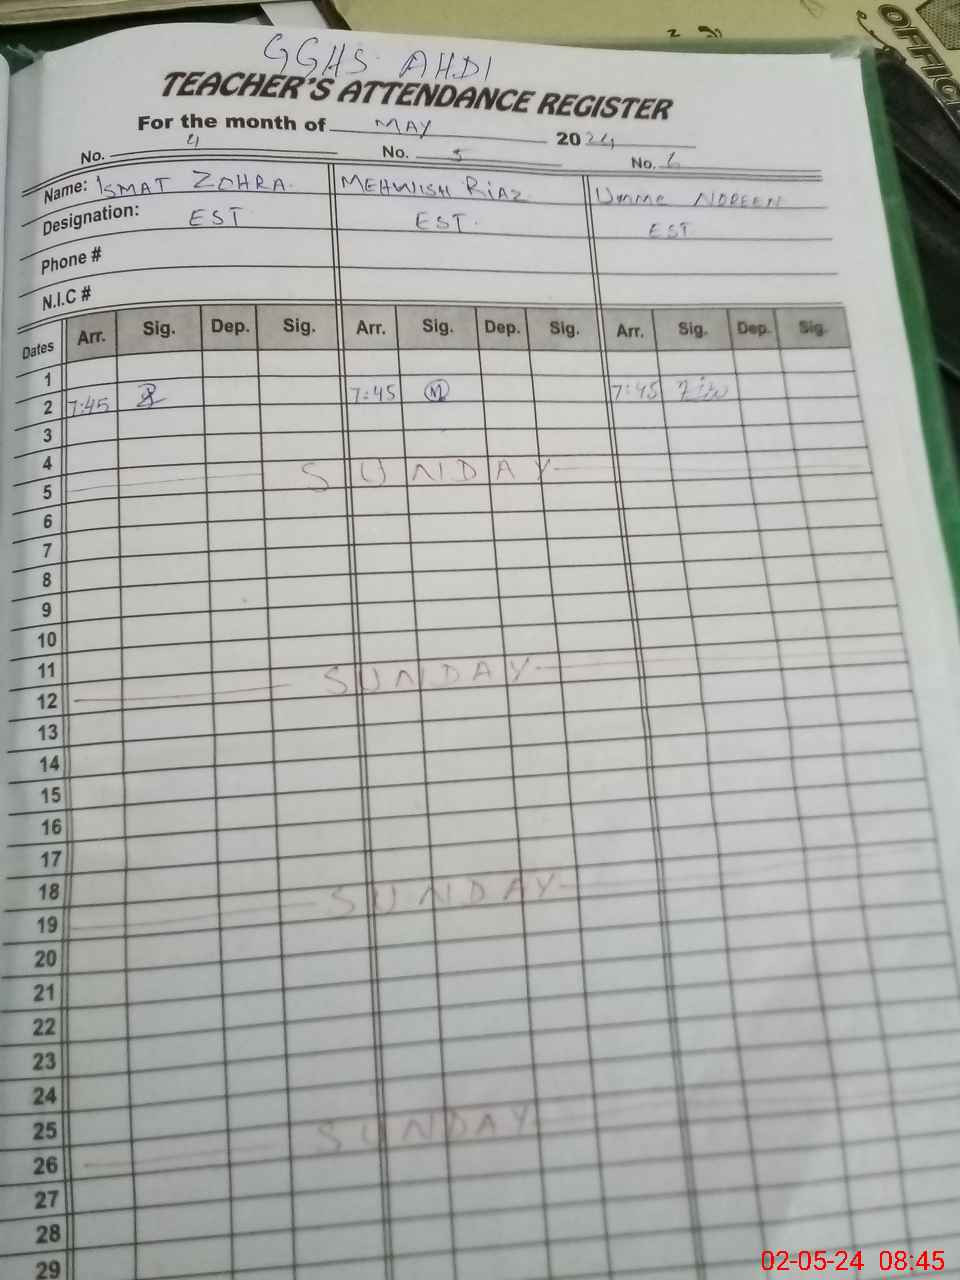 OFFIC
GGHS AHDI
TEACHER'S ATTENDANCE REGISTER
For the month of MAY 2024
No. 4 No. 5 No. 6
Name: ISMAT ZOHRA. MEHWISH RIAZ Umme NOREEN
Designation: EST EST. EST
Phone #
N.I.C #
Dates Arr. Sig. Dep. Sig. Arr. Sig. Dep. Sig. Arr. Sig. Dep. Sig.
1
2 7:45 7:45 M 7:45
3
4
5 SUNDAY
6
7
8
9
10
11
12 SUNDAY
13
14
15
16
17
18
19 SUNDAY
20
21
22
23
24
25
26 SUNDAY
27
28
29
02-05-24 08:45